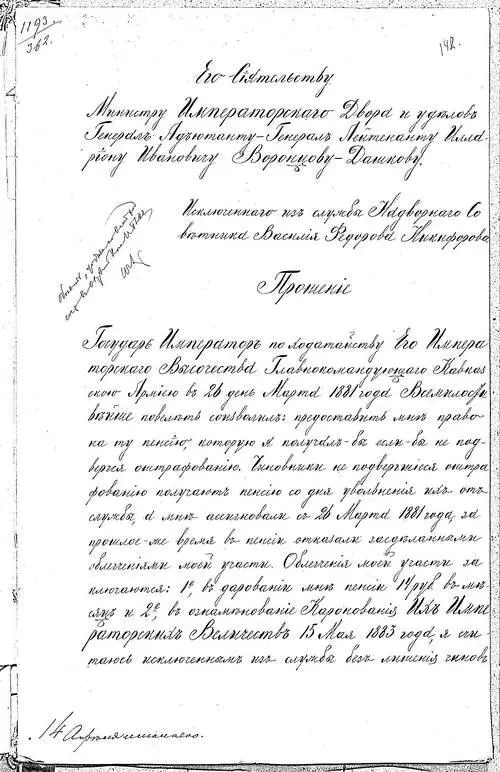 1193
362.
142.
Его Сіятельству
Министру Императорскаго Двора и удѣловъ
Генералъ Адъютанту-Генералъ Лейтенанту Илла-
ріону Ивановичу Воронцову-Дашкову.
Исключеннаго изъ службы Надворнаго Со
вѣтника Василія Ѳедорова Никифорова
Прошеніе
Государь Императоръ по ходатайству Его Импера
торскаго Высочества Главнокомандующаго Кавказ
скою Арміею въ 26 день Марта 1881 года Всемилости
вѣйше повелѣть соизволилъ: предоставить мнѣ право
на ту пенсію, которую я получалъ-бы если-бы не под-
вергся оштрафованію. Чиновники не подвергшіеся оштра
фованію получаютъ пенсію со дня увольненія ихъ отъ
службы, а мнѣ ассигновали съ 26 Марта 1881 года, за
прошлое-же время въ пенсіи отказали сдѣланными
облегченіями моей участи. Облегченія моей участи за
ключаются: 1е, въ дарованіи мнѣ пенсіи 14 руб въ мѣ-
сяцъ и 2е, въ ознаменованіе Коронованія Ихъ Импе
раторскихъ Величествъ 15 Мая 1883 года, я счи-
таюсь исключеннымъ изъ службы безъ лишенія чиновъ
14